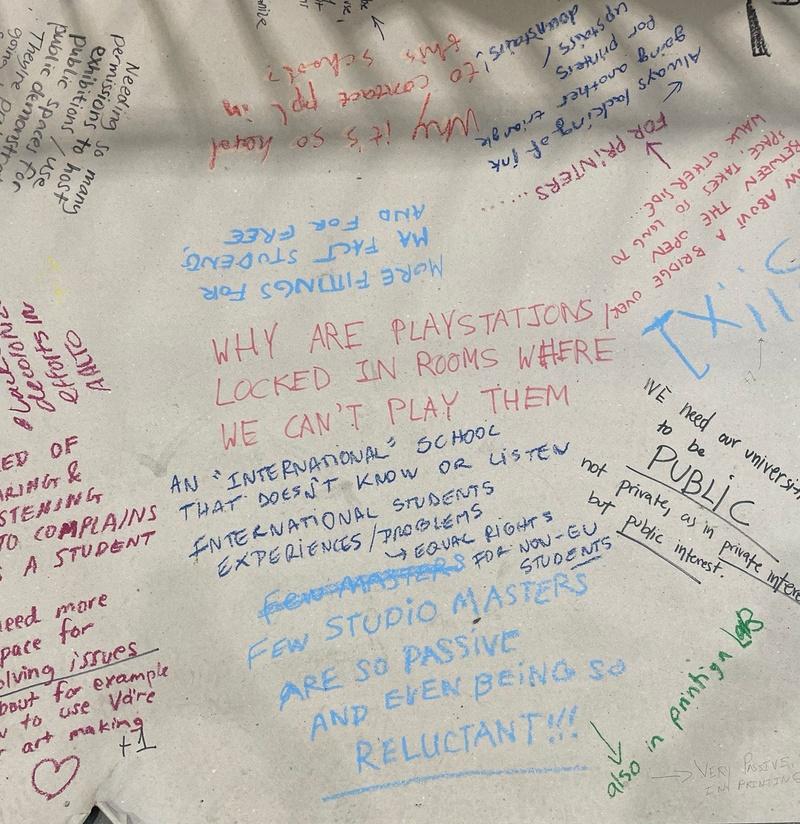 Needing so many
permissions to host
exhibitions / use
public space for
They're demonstra
Why it's so hard
to contact ppl in
this school?
Always lacking of ink
going another triangle
for printers
upstairs /
downstairs!
FOR PRINTERS
.......
W ABOUT A BRIDGE OVER
BETWEEN THE OPEN
SPACE TAKES SO LONG TO
WALK OTHER SIDE...
MORE FITTINGS FOR
MA FACT STUDENTS,
AND FOR FREE
WHY ARE PLAYSTATIONS
LOCKED IN ROOMS WHERE
WE CAN'T PLAY THEM
AN "INTERNATIONAL" SCHOOL
THAT DOESN'T KNOW OR LISTEN
INTERNATIONAL STUDENTS
EXPERIENCES/PROBLEMS
→ EQUAL RIGHTS
FOR NON-EU
STUDENTS
FEW MASTERS
FEW STUDIO MASTERS
ARE SO PASSIVE
AND EVEN BEING SO
RELUCTANT!!!
WE need our university
to be
PUBLIC
not private, as in private intere
but public interest.
also in printign LAB
→ VERY PASSIVE
IN PRINTING
+1
ED OF
ARING &
STENING
TO COMPLAINS
S A STUDENT
need more
pace for
olving issues
bout for example
to use Vd're
art making
+1